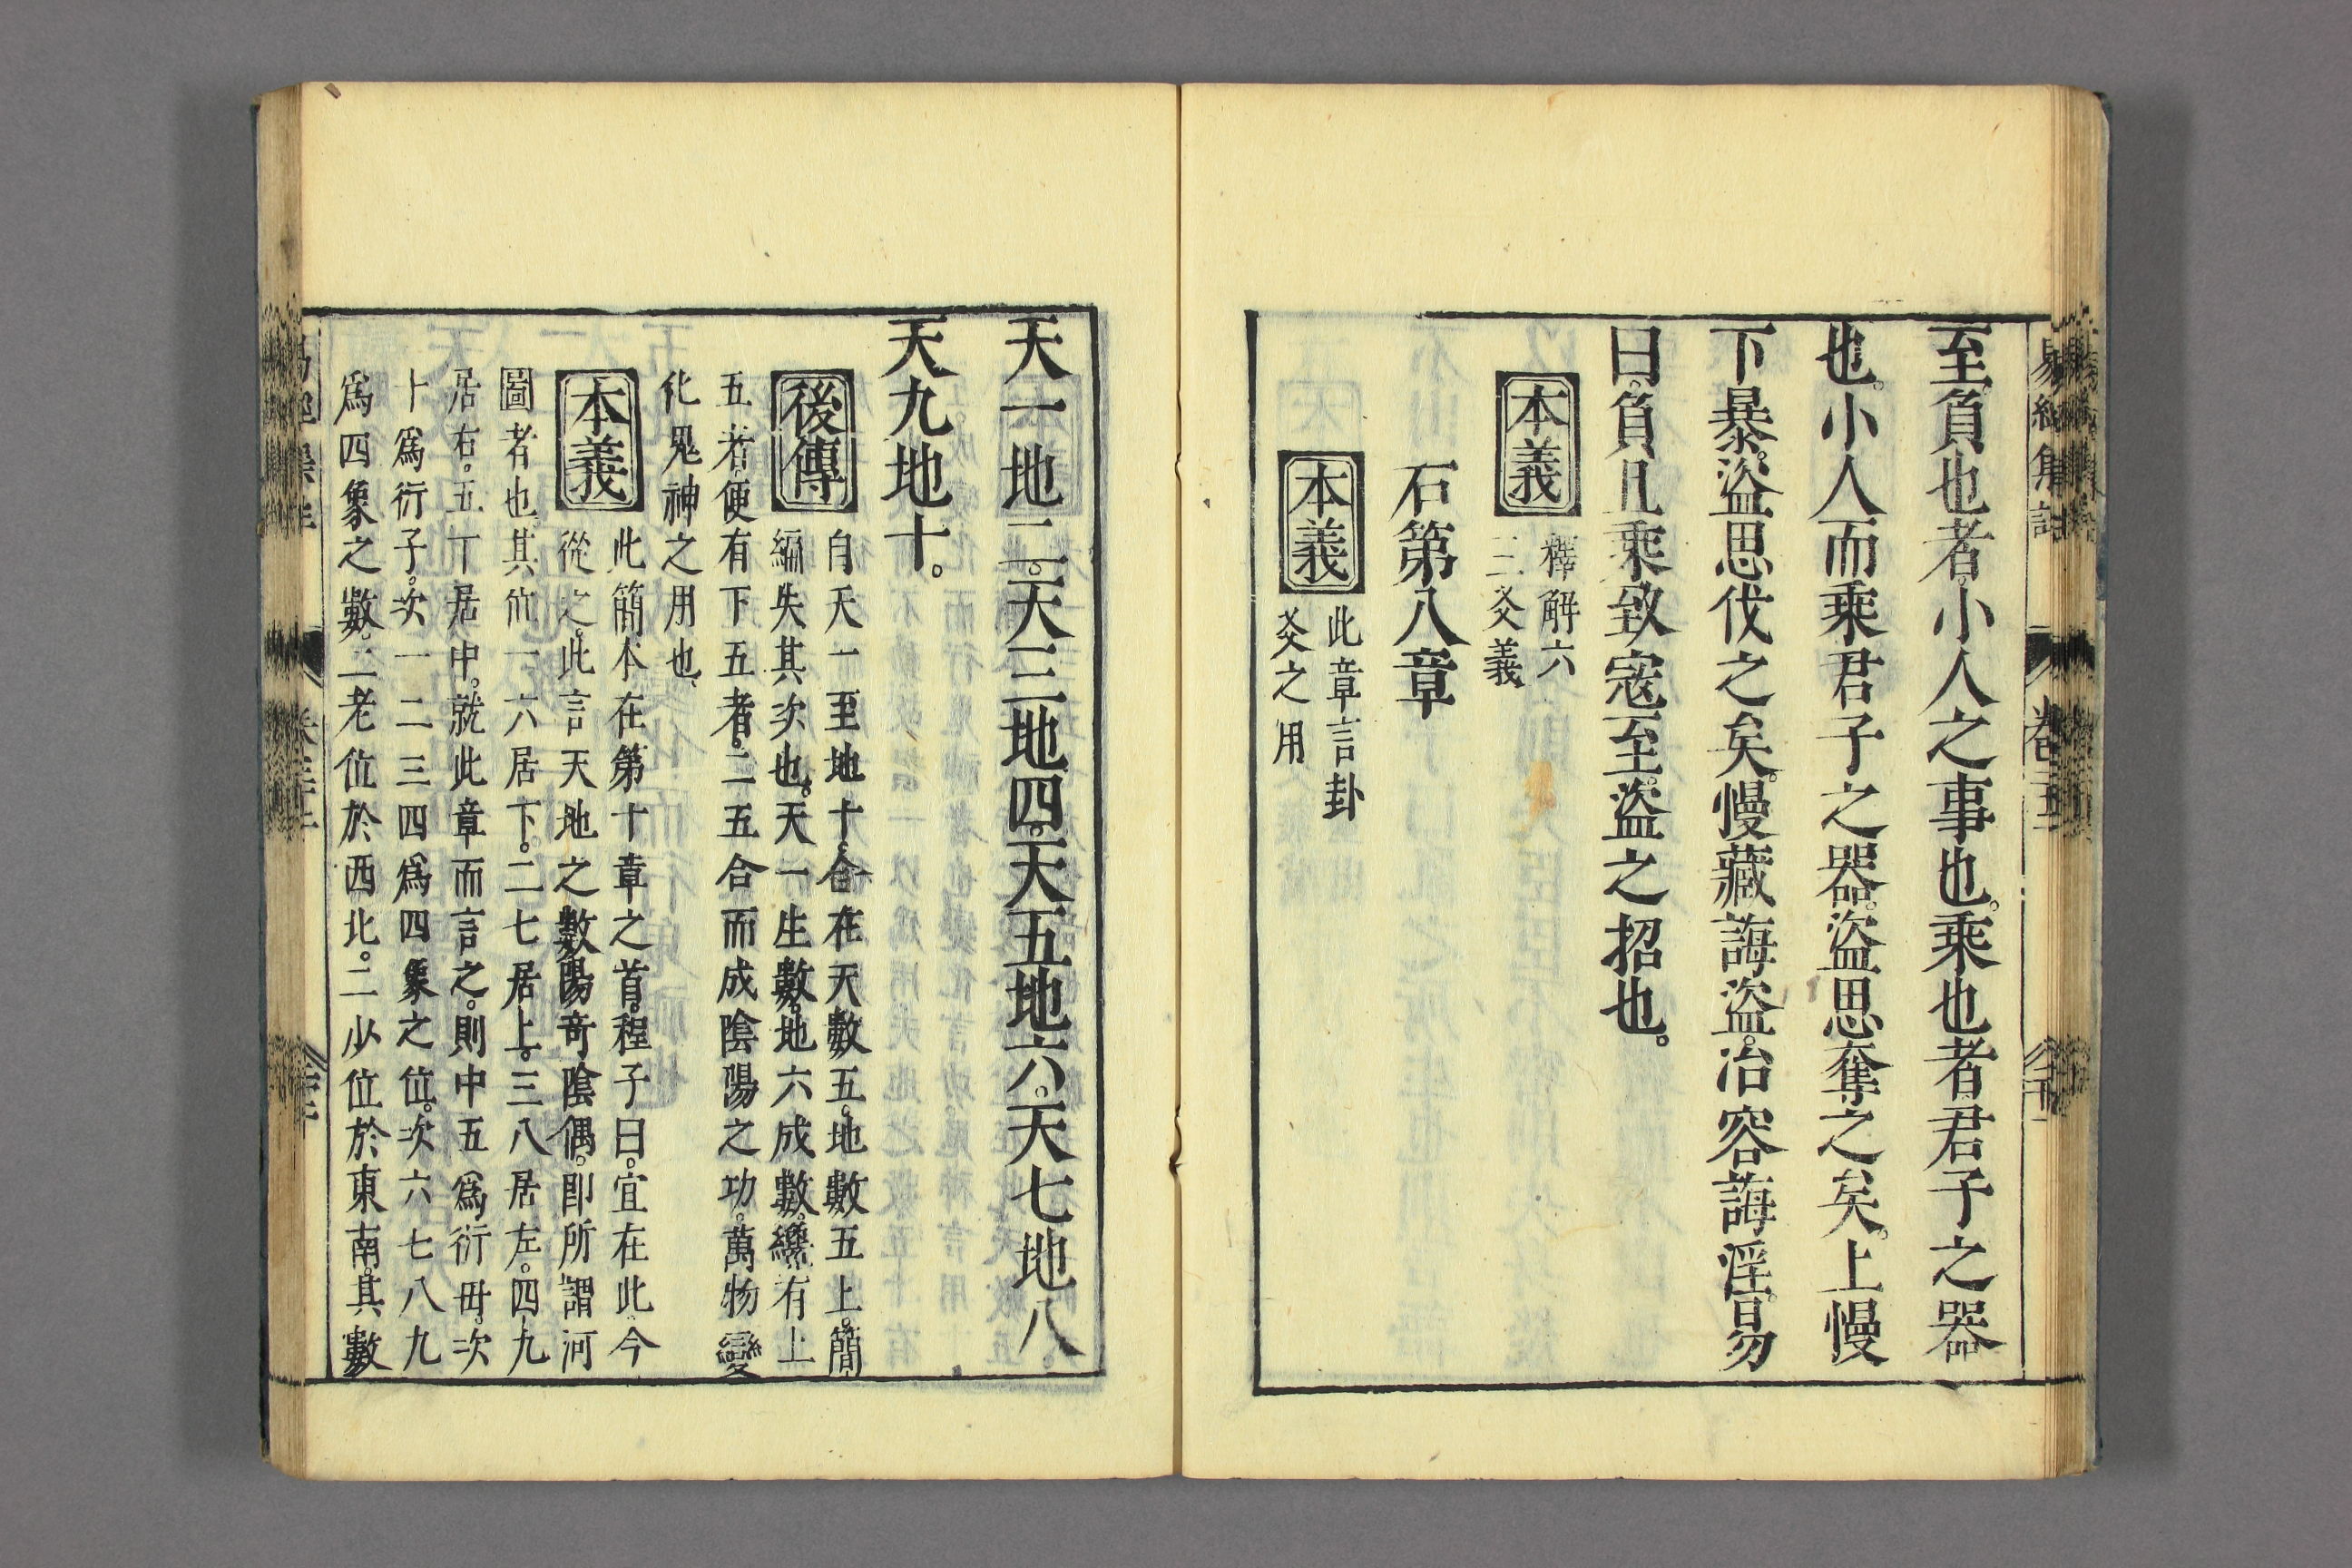 易經集註
卷三
至負也者。小人之事也。乘也者君子之器
也。小人而乘君子之器。盜思奪之矣。上慢
下暴。盜思伐之矣。慢藏誨盜。冶容誨淫。易
曰。負且乘致寇至。盜之招也。
本義
釋解六
三爻義
右第八章
本義
此章言卦
爻之用
天一地二。天三地四。天五地六。天七地八。
天九地十。
後傳
自天一至地十。合在天數五。地數五上。簡
編失其次也。天一生數。地六成數。纔有上
五者。便有下五者。二五合而成陰陽之功。萬物變
化鬼神之用也
本義
此簡本在第十章之首。程子曰。宜在此。今
從之。此言天地之數陽奇陰偶。即所謂河
圖者也其位一六居下。二七居上。三八居左。四九
居右。五十居中。就此章而言之。則中五爲衍母。次
十爲衍子。次一二三四爲四象之位。次六七八九
爲四象之數。二老位於西北。二少位於東南。其數